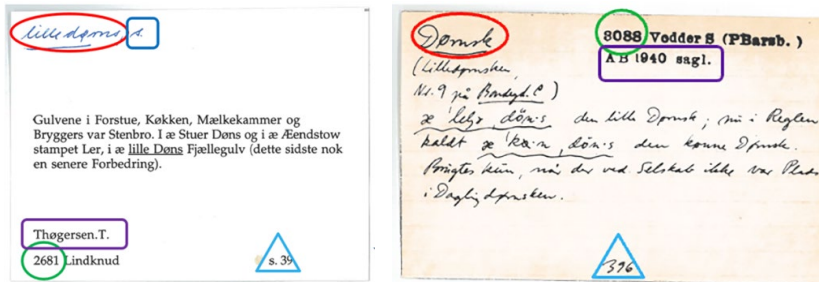 lilledøns s.
Gulvene i Forstue, Køkken, Mælkekammer og
Bryggers var Stenbro. I æ Stuer Døns og i æ Æendstow
stampet Ler, i æ lille Døns Fjællegulv (dette sidste nok
en senere Forbedring).
Thøgersen.T.
2681 Lindknud
s. 39
Dørnsk
8088 Vedder S (PBarsb. )
AB 1940 sagl.
(Lilledørnsken,
Nr. 9 på Bondegd. C)
æ dön·s den lille Dørnsk; nu i Reglen
kaldt æ dön·s den kønne Dørnsk.
Brugtes kun, når der ved Selskab ikke var Plads
i Dagligdørnsken.
396